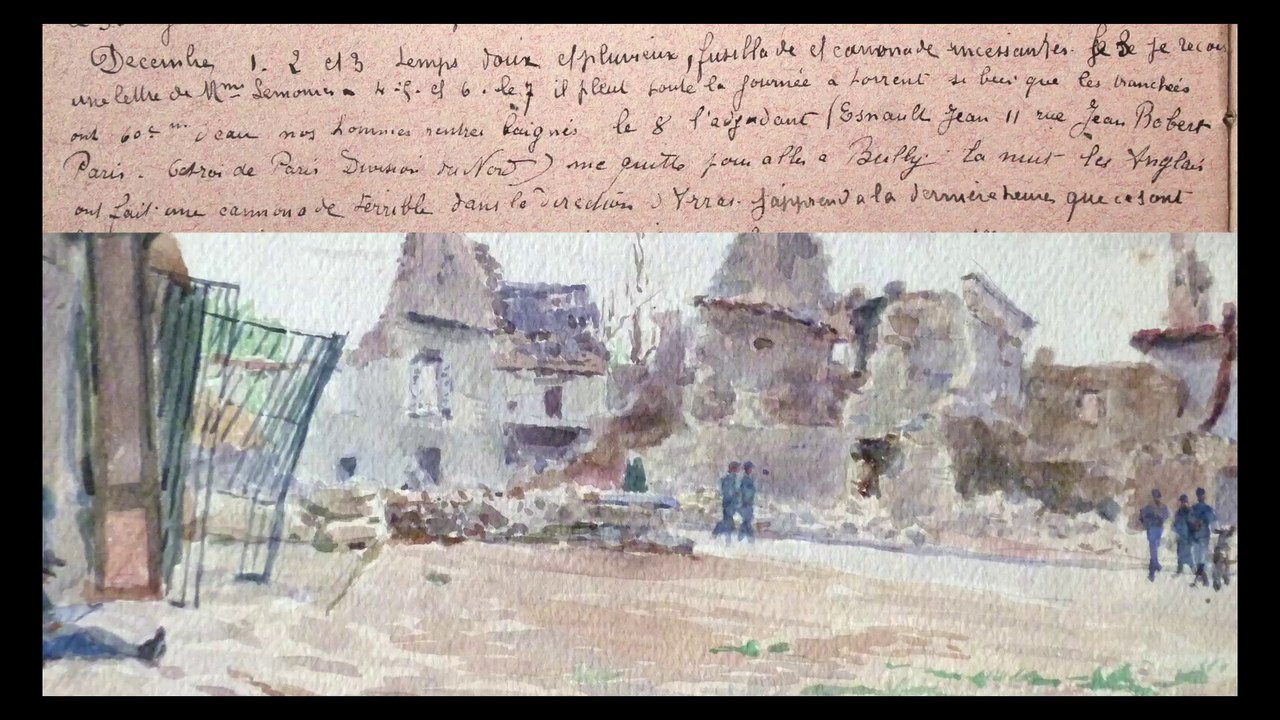 Decembre 1. 2 et 3 temps doux et pluvieux, fusillade et cannonade incessantes. Le 3e je recois
une lettre de Mme Lemonier 4-5. et 6. le 7 il pleut toute la journée a torrent si bien que les tranchées
ont 60c m d'eau nos hommes rentres baignés le 8 l'adjudant (Esnault Jean 11 rue Jean Robert
Paris. Octroi de Paris Division du Nord) me quitte pour aller a Bully la nuit les Anglais
ont fait une cannonade terrible dans la direction d'Arras. J'apprend a la derniere heure que ce sont